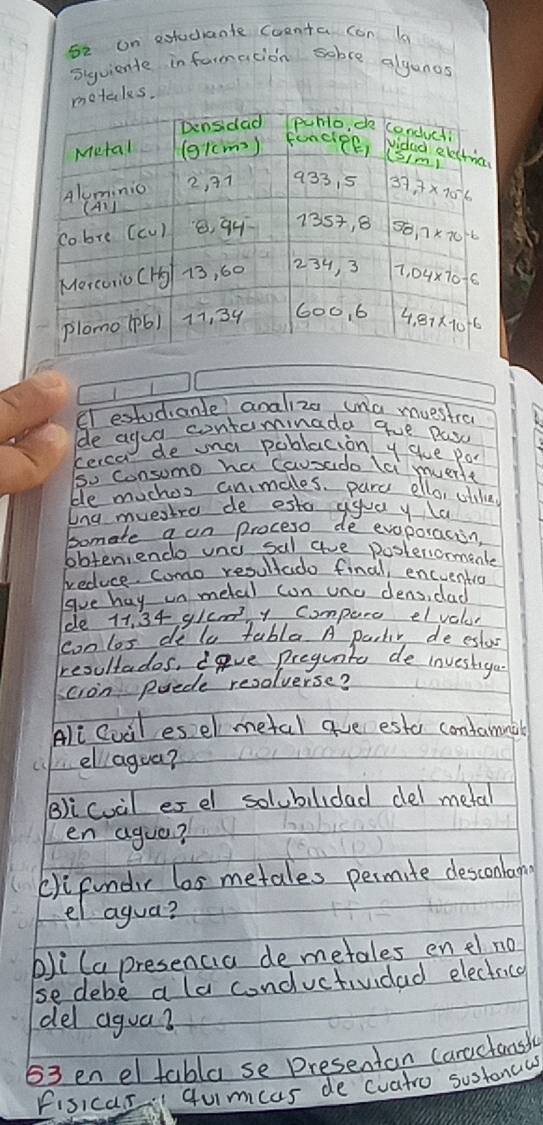 52 un estudiante cuenta con la
siguiente información sobre algunos
metales.
Metal Densidad (g/cm³) punto de función (k) conductividad eléctrica (S/m)
Aluminio (Al) 2,71 933,5 37,7x10-6
Cobre (cu) 8,94 1357,8 58,1x10-6
Mercurio (Hg) 13,60 234,3 1,04x10-6
plomo (pb) 11,34 600,6 4,81x10-6
el estudiante analiza una muestra
de agua contaminada que pasa
cerca de una poblacion y que por
su consumo ha causado la muerte
de muchos animales. para ello, utiliza
una muestra de esta agua y la
somete a un proceso de evaporación,
obteniendo una sal que posteriormente
reduce. como resultado final, encuentra
que hay un metal con una densidad
de 11,34 g/cm³, y compara el valor
con los de la tabla. A partir de estos
resultados, ¿que pregunta de investiga-
ción puede resolverse?
A) ¿Cuál es el metal que esta contaminado
el agua?
B) ¿cuál es el solubilidad del metal
en agua?
c) ¿fundir los metales permite descontam
el agua?
D) ¿la presencia de metales en el rio
se debe a la conductividad electrica
del agua?
53 en el tabla se presentan caracteristic
fisicas quimicas de cuatro sustancias